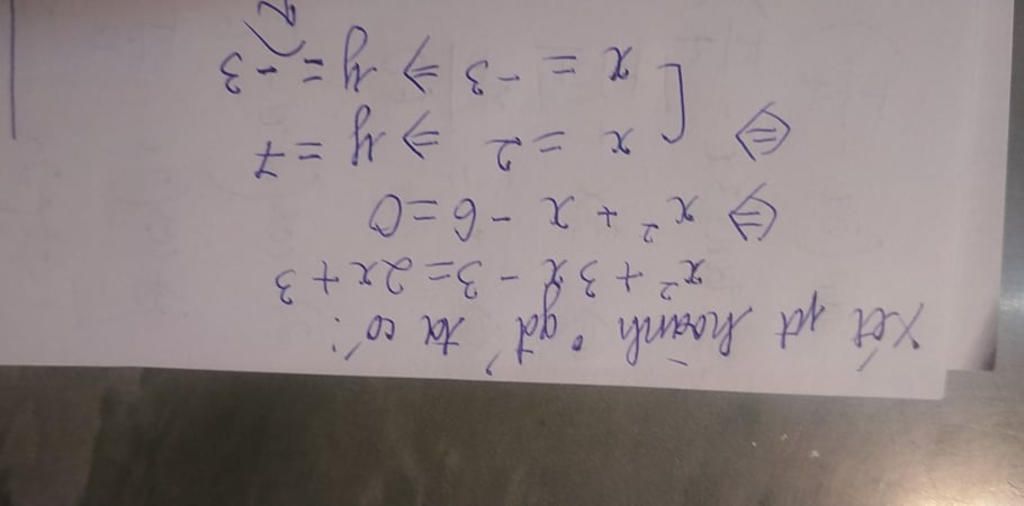 Xét pt hoành độ gđ, ta có:
x² + 3x - 3 = 2x + 3
⇔ x² + x - 6 = 0
⇔ [ x = 2 ⇒ y = 7
x = -3 ⇒ y = -3